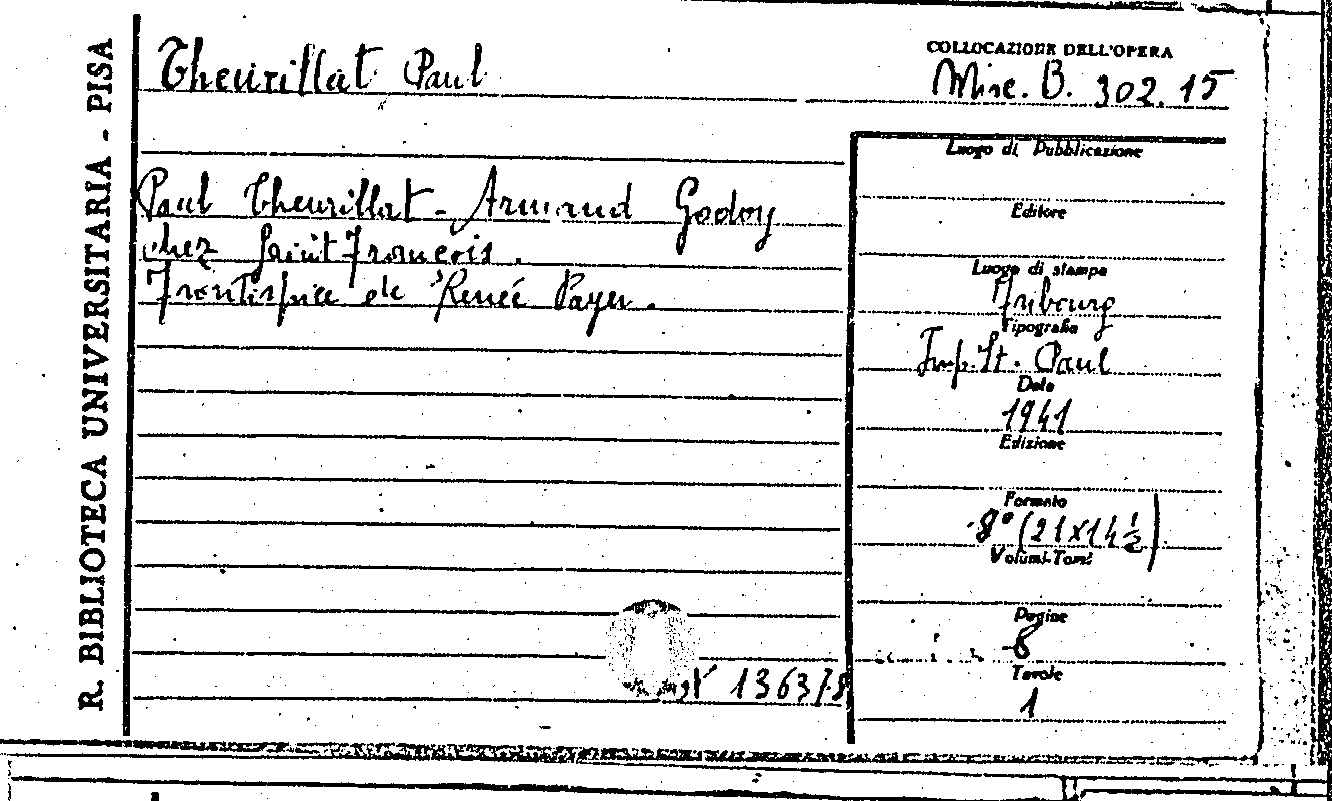 R. BIBLIOTECA UNIVERSITARIA - PISA
Theurillat Paul
COLLOCAZIONE DELL'OPERA
Misc. B. 302.15
Paul Theurillat - Armand Godoy
chez Saint François.
Frontispice de Renée Payer.
Luogo di Pubblicazione
Editore
Luogo di stampa
Fribourg
Tipografia
Imp. St. Paul
Data
1941
Edizione
Formato
8° (21x14 ½)
Volumi-Tomi
Pagine
8
Tavole
1